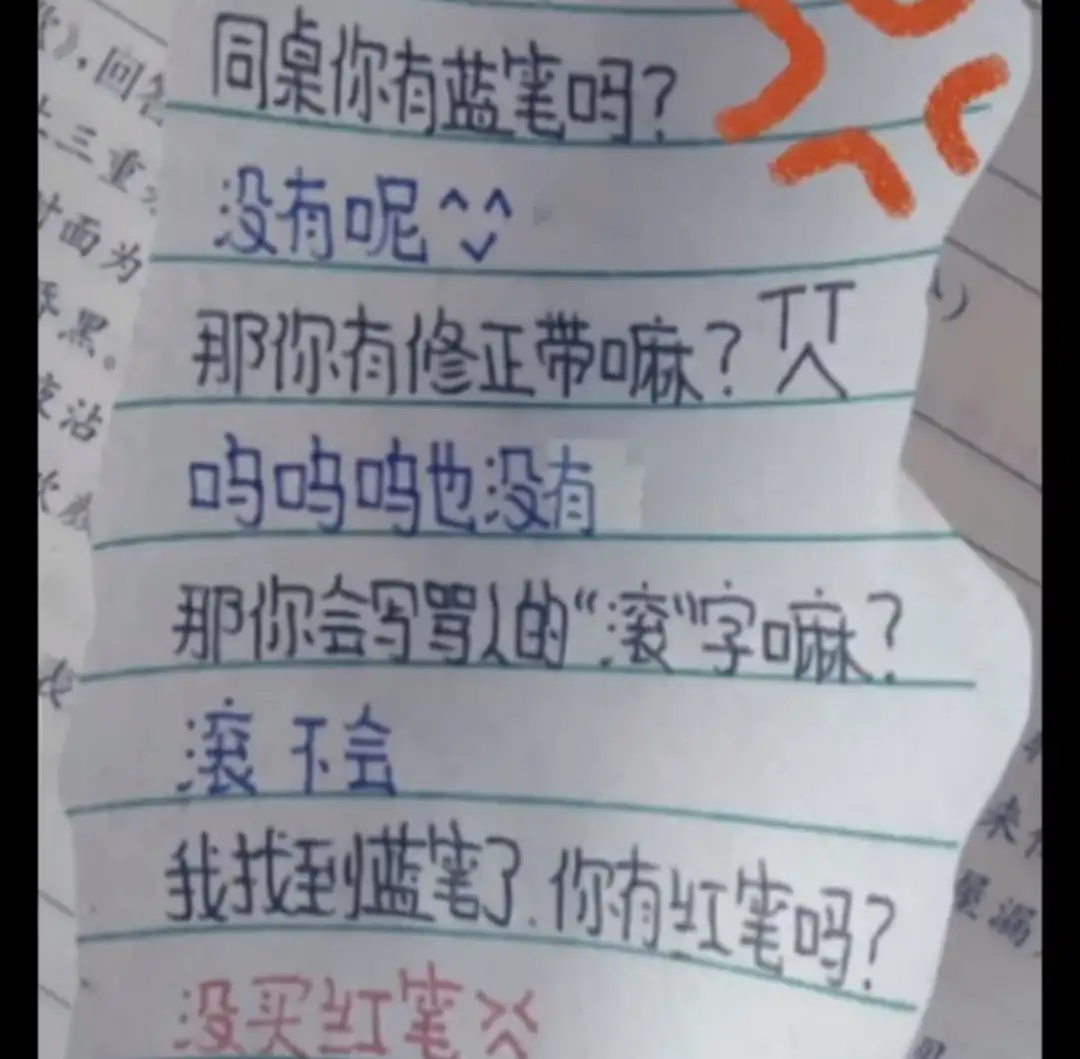 同桌你有蓝笔吗?
没有呢^^
那你有修正带嘛?TT
呜呜呜也没有
那你会写骂人的“滚”字嘛?
滚 不会
我找到蓝笔了.你有红笔吗?
没买红笔
》,回答
三重
面为
黑。
沾
来
漏